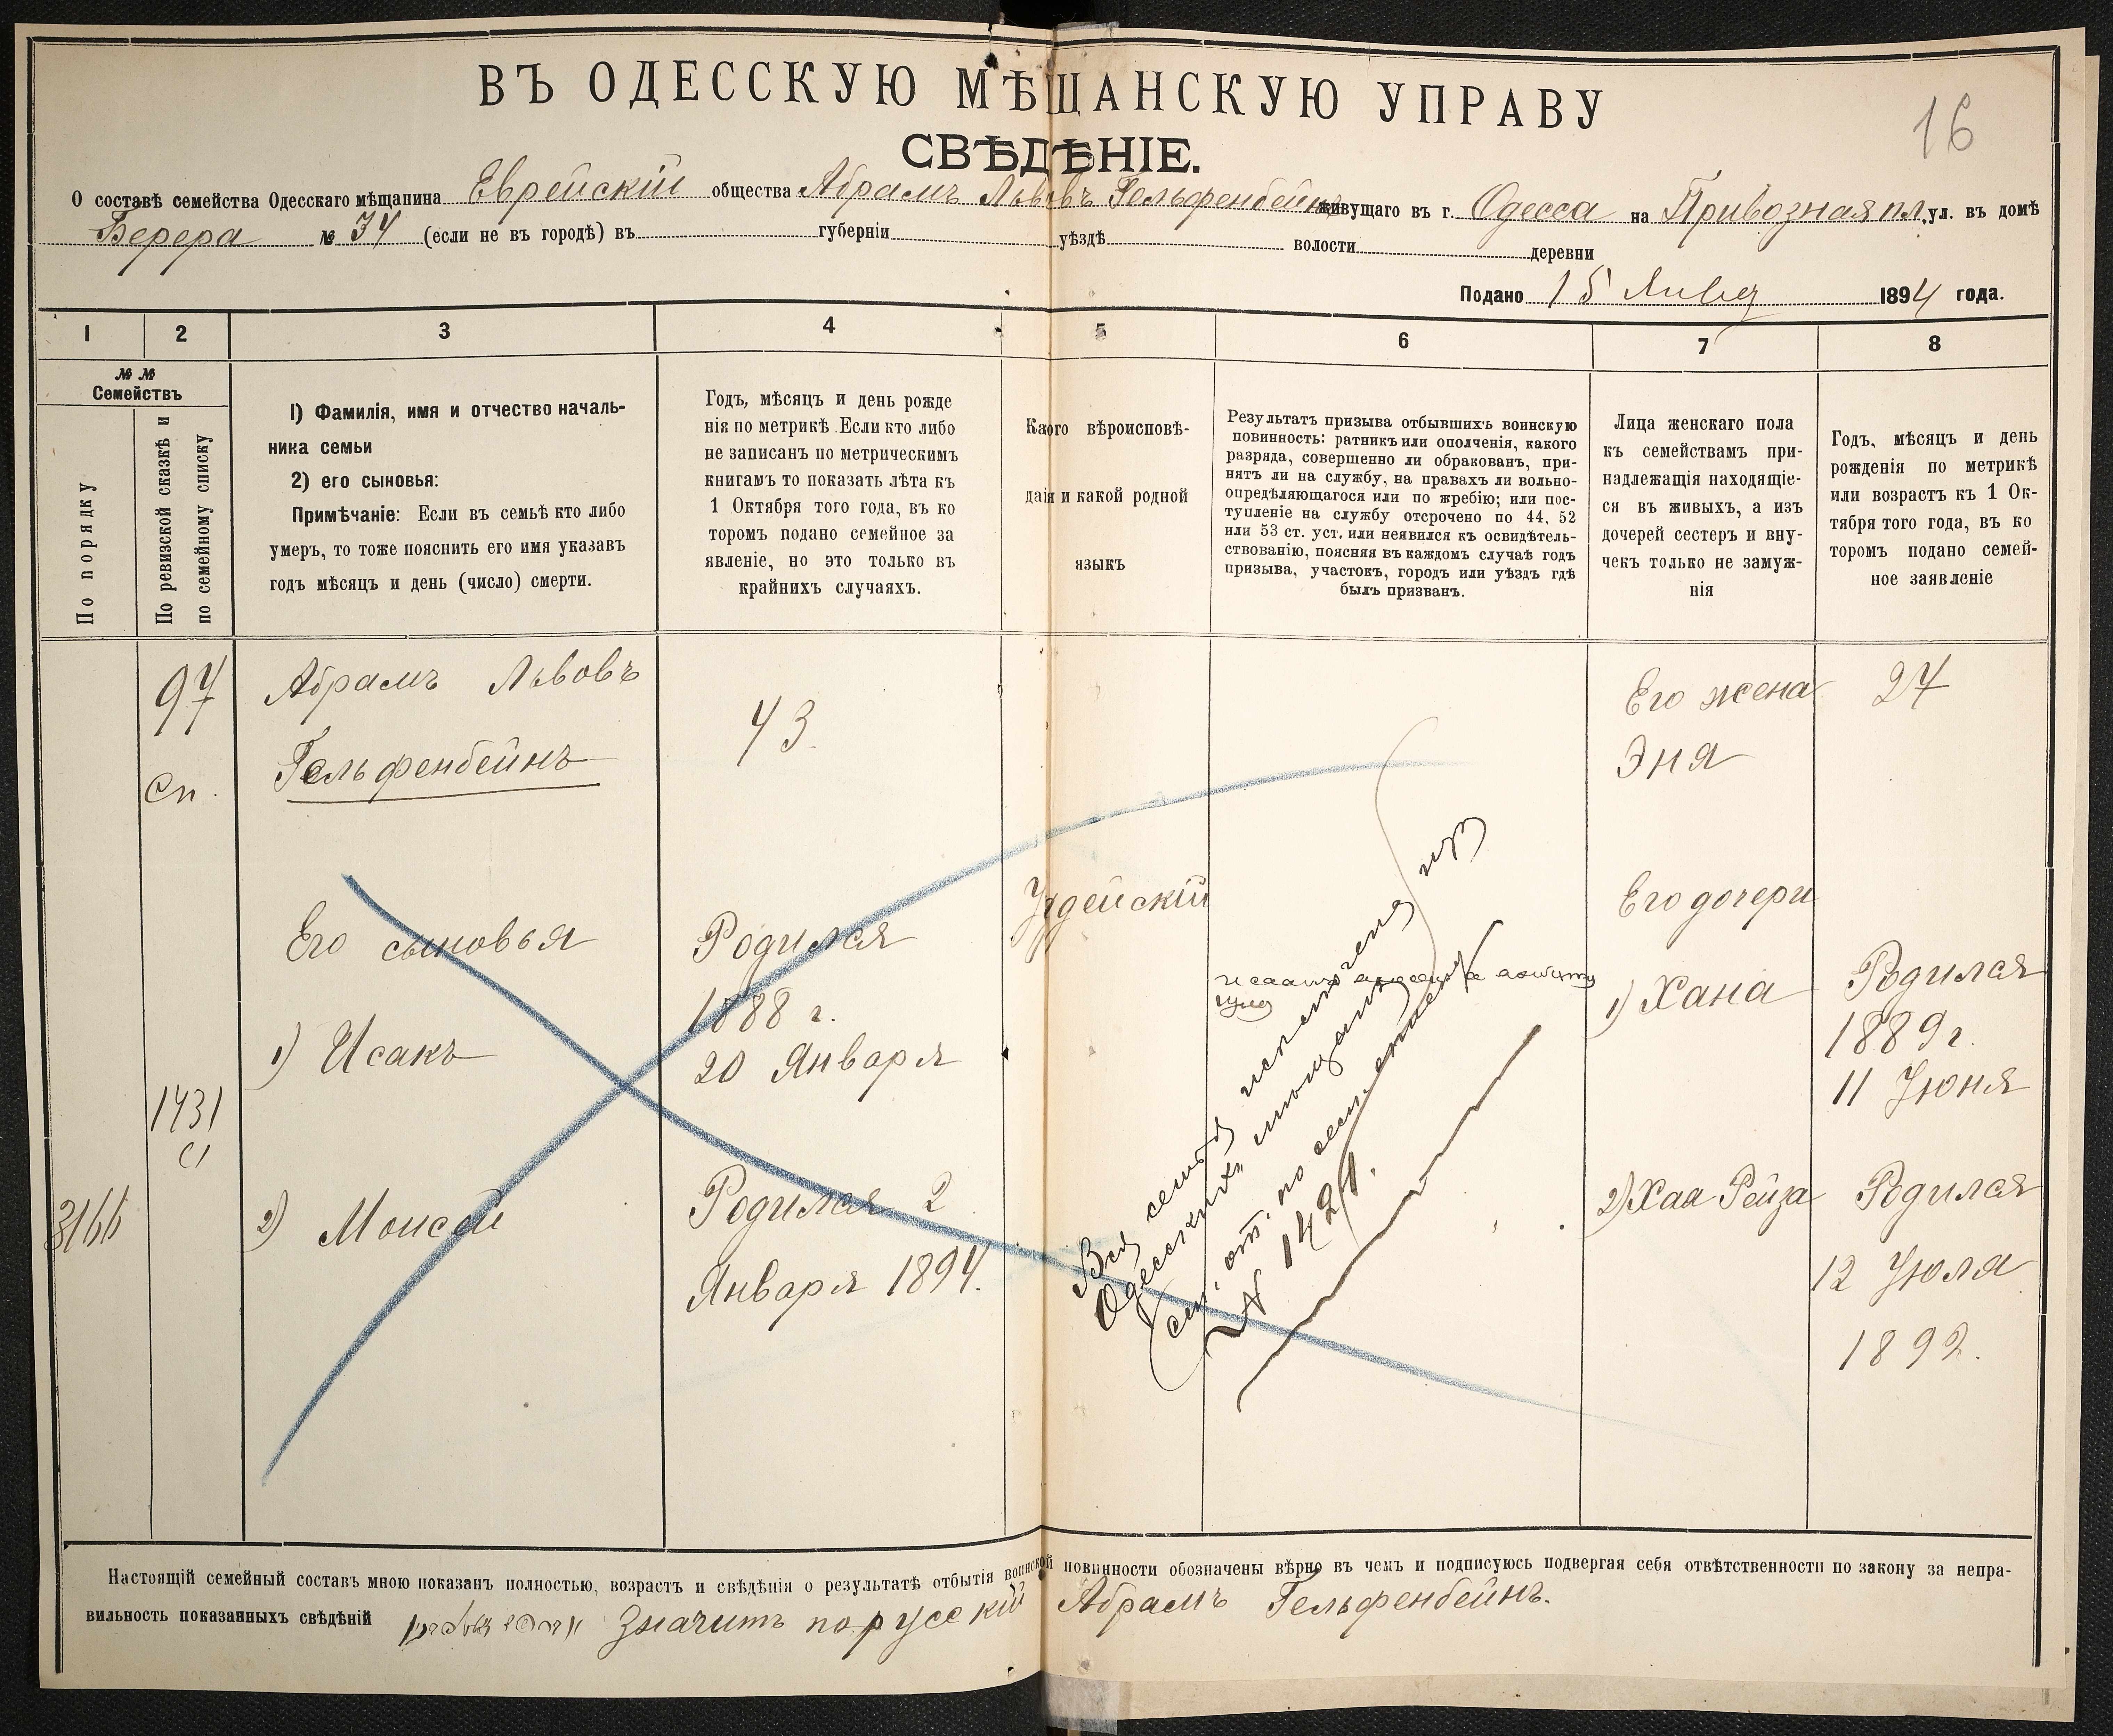 16
ВЪ ОДЕССКУЮ МѢЩАНСКУЮ УПРАВУ
СВѢДѢНІЕ.
О составѣ семейства Одесскаго мѣщанина Еврейскій общества Абрамъ Львовъ Гельфенбейнъ живущаго въ г. Одесса на Привозная пл. ул. въ домѣ
№ 34 (если не въ городѣ) въ губерніи уѣздѣ волости деревни
Подано 15 1894 года.
1 2 3 4 5 6 7 8
№ №
Семействъ
По порядку
По ревизской сказкѣ и
по семейному списку
1) Фамилія, имя и отчество началь-
ника семьи
2) его сыновья:
Примѣчаніе: Если въ семьѣ кто либо
умеръ, то тоже пояснить его имя указавъ
годъ мѣсяцъ и день (число) смерти.
Годъ, мѣсяцъ и день рожде
нія по метрикѣ. Если кто либо
не записанъ по метрическимъ
книгамъ то показать лѣта къ
1 Октября того года, въ ко
торомъ подано семейное за
явленіе, но это только въ
крайнихъ случаяхъ.
Каого вѣроисповѣ-
даія и какой родной
языкъ
Результатъ призыва отбывшихъ воинскую
повинность: ратникъ или ополченія, какого
разряда, совершенно ли обракованъ, при-
нятъ ли на службу, на правахъ ли вольно-
опредѣляющагося или по жребію; или пос-
тупленіе на службу отсрочено по 44, 52
или 53 ст. уст. или неявился къ освидѣтель-
ствованію, поясняя въ каждомъ случаѣ годъ
призыва, участокъ, городъ или уѣздъ гдѣ
былъ призванъ.
Лица женскаго пола
къ семействамъ при-
надлежащія находящіе-
ся въ живыхъ, а изъ
дочерей сестеръ и вну-
чекъ только не замуж-
нія
Годъ, мѣсяцъ и день
рожденія по метрикѣ
или возрастъ къ 1 Ок-
тября того года, въ ко
торомъ подано семей-
ное заявленіе
97
Сп.
Абрамъ Львовъ
Гельфенбейнъ
43.
Его жена
Эня
27
Его сыновья
1) Исакъ
Родился
1888 г.
20 Января
Іудейскій
Его дочери
1) Хана
Родился
1889 г.
11 Іюня
1431
3166
2) Моисей
Родился 2
Января 1894.
2) Хая Рейза
Родился
12 Іюля
1892.
Вся семья исключена изъ
Одесскихъ мѣщанъ
№ 1421.
Настоящій семейный составъ мною показанъ полностью, возрастъ и свѣдѣнія о результатѣ отбытія воинской повинности обозначены вѣрно въ чемъ и подписуюсь подвергая себя отвѣтственности по закону за непра-
вильность показанныхъ свѣдѣній значитъ по русскій Абрамъ Гельфенбейнъ.